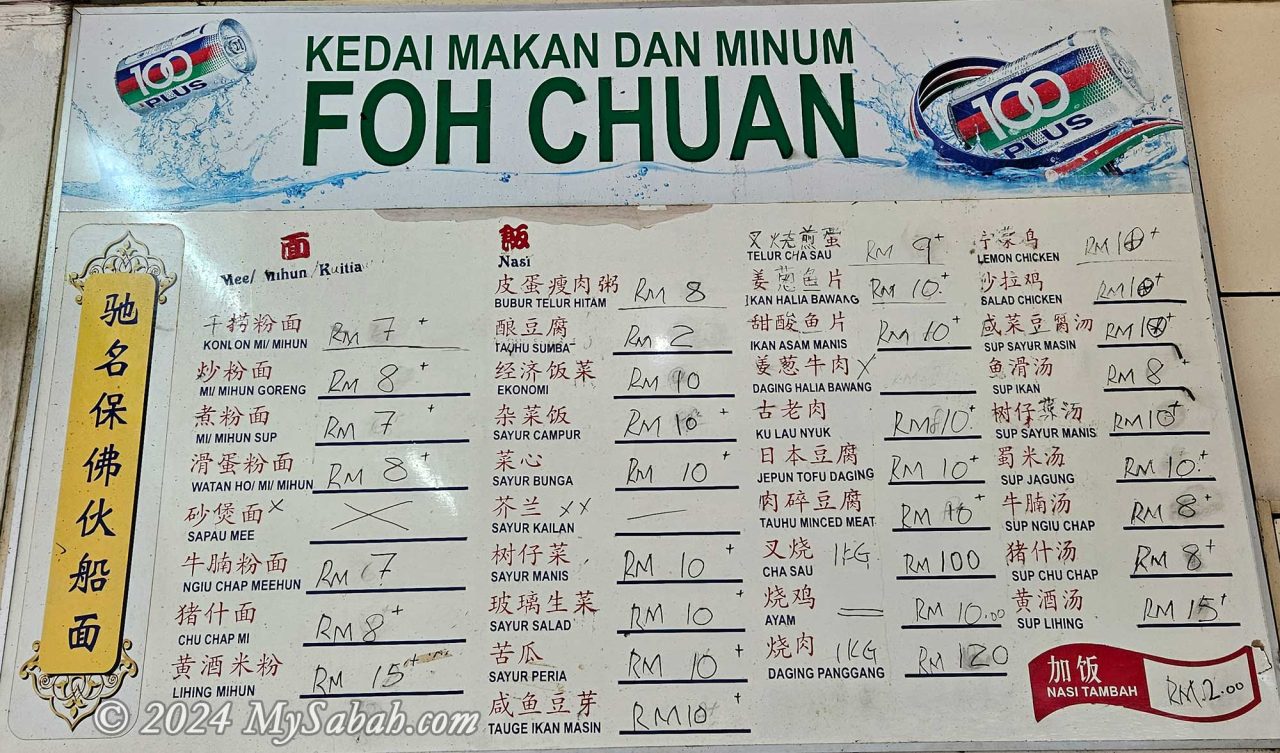 100
PLUS
KEDAI MAKAN DAN MINUM
FOH CHUAN
100
PLUS
驰名保佛伙船面
面
Mee/ Mihun /Kuitiau
干捞粉面
KONLON MI/ MIHUN RM 7+
炒粉面
MI/ MIHUN GORENG RM 8+
煮粉面
MI/ MIHUN SUP RM 7+
滑蛋粉面
WATAN HO/ MI/ MIHUN RM 8+
砂煲面 X
SAPAU MEE
牛腩粉面
NGIU CHAP MEEHUN RM 7
猪什面
CHU CHAP MI RM 8+
黄酒米粉
LIHING MIHUN RM 15+
飯
Nasi
皮蛋瘦肉粥
BUBUR TELUR HITAM RM 8
酿豆腐
TAUHU SUMBAT RM 2
经济饭菜
EKONOMI RM 10
杂菜饭
SAYUR CAMPUR RM 10+
菜心
SAYUR BUNGA RM 10+
芥兰 XX
SAYUR KAILAN —
树仔菜
SAYUR MANIS RM 10+
玻璃生菜
SAYUR SALAD RM 10+
苦瓜
SAYUR PERIA RM 10+
咸鱼豆芽
TAUGE IKAN MASIN RM10+
叉烧煎蛋
TELUR CHA SAU RM 9+
姜葱鱼片
IKAN HALIA BAWANG RM 10+
甜酸鱼片
IKAN ASAM MANIS RM 10+
姜葱牛肉 X
DAGING HALIA BAWANG
古老肉
KU LAU NYUK RM 10+
日本豆腐
JEPUN TOFU DAGING RM 10+
肉碎豆腐
TAUHU MINCED MEAT RM 10+
叉烧 1KG
CHA SAU RM 100
烧鸡
AYAM RM 10.00
烧肉 1KG
DAGING PANGGANG RM 120
柠檬鸡
LEMON CHICKEN RM 10+
沙拉鸡
SALAD CHICKEN RM 10+
咸菜豆腐汤
SUP SAYUR MASIN RM 10+
鱼滑汤
SUP IKAN RM 8+
树仔菜汤
SUP SAYUR MANIS RM 10+
蜀米汤
SUP JAGUNG RM 10+
牛腩汤
SUP NGIU CHAP RM 8+
猪什汤
SUP CHU CHAP RM 8+
黄酒汤
SUP LIHING RM 15+
加饭
NASI TAMBAH RM.2.00
© 2024 MySabah.com